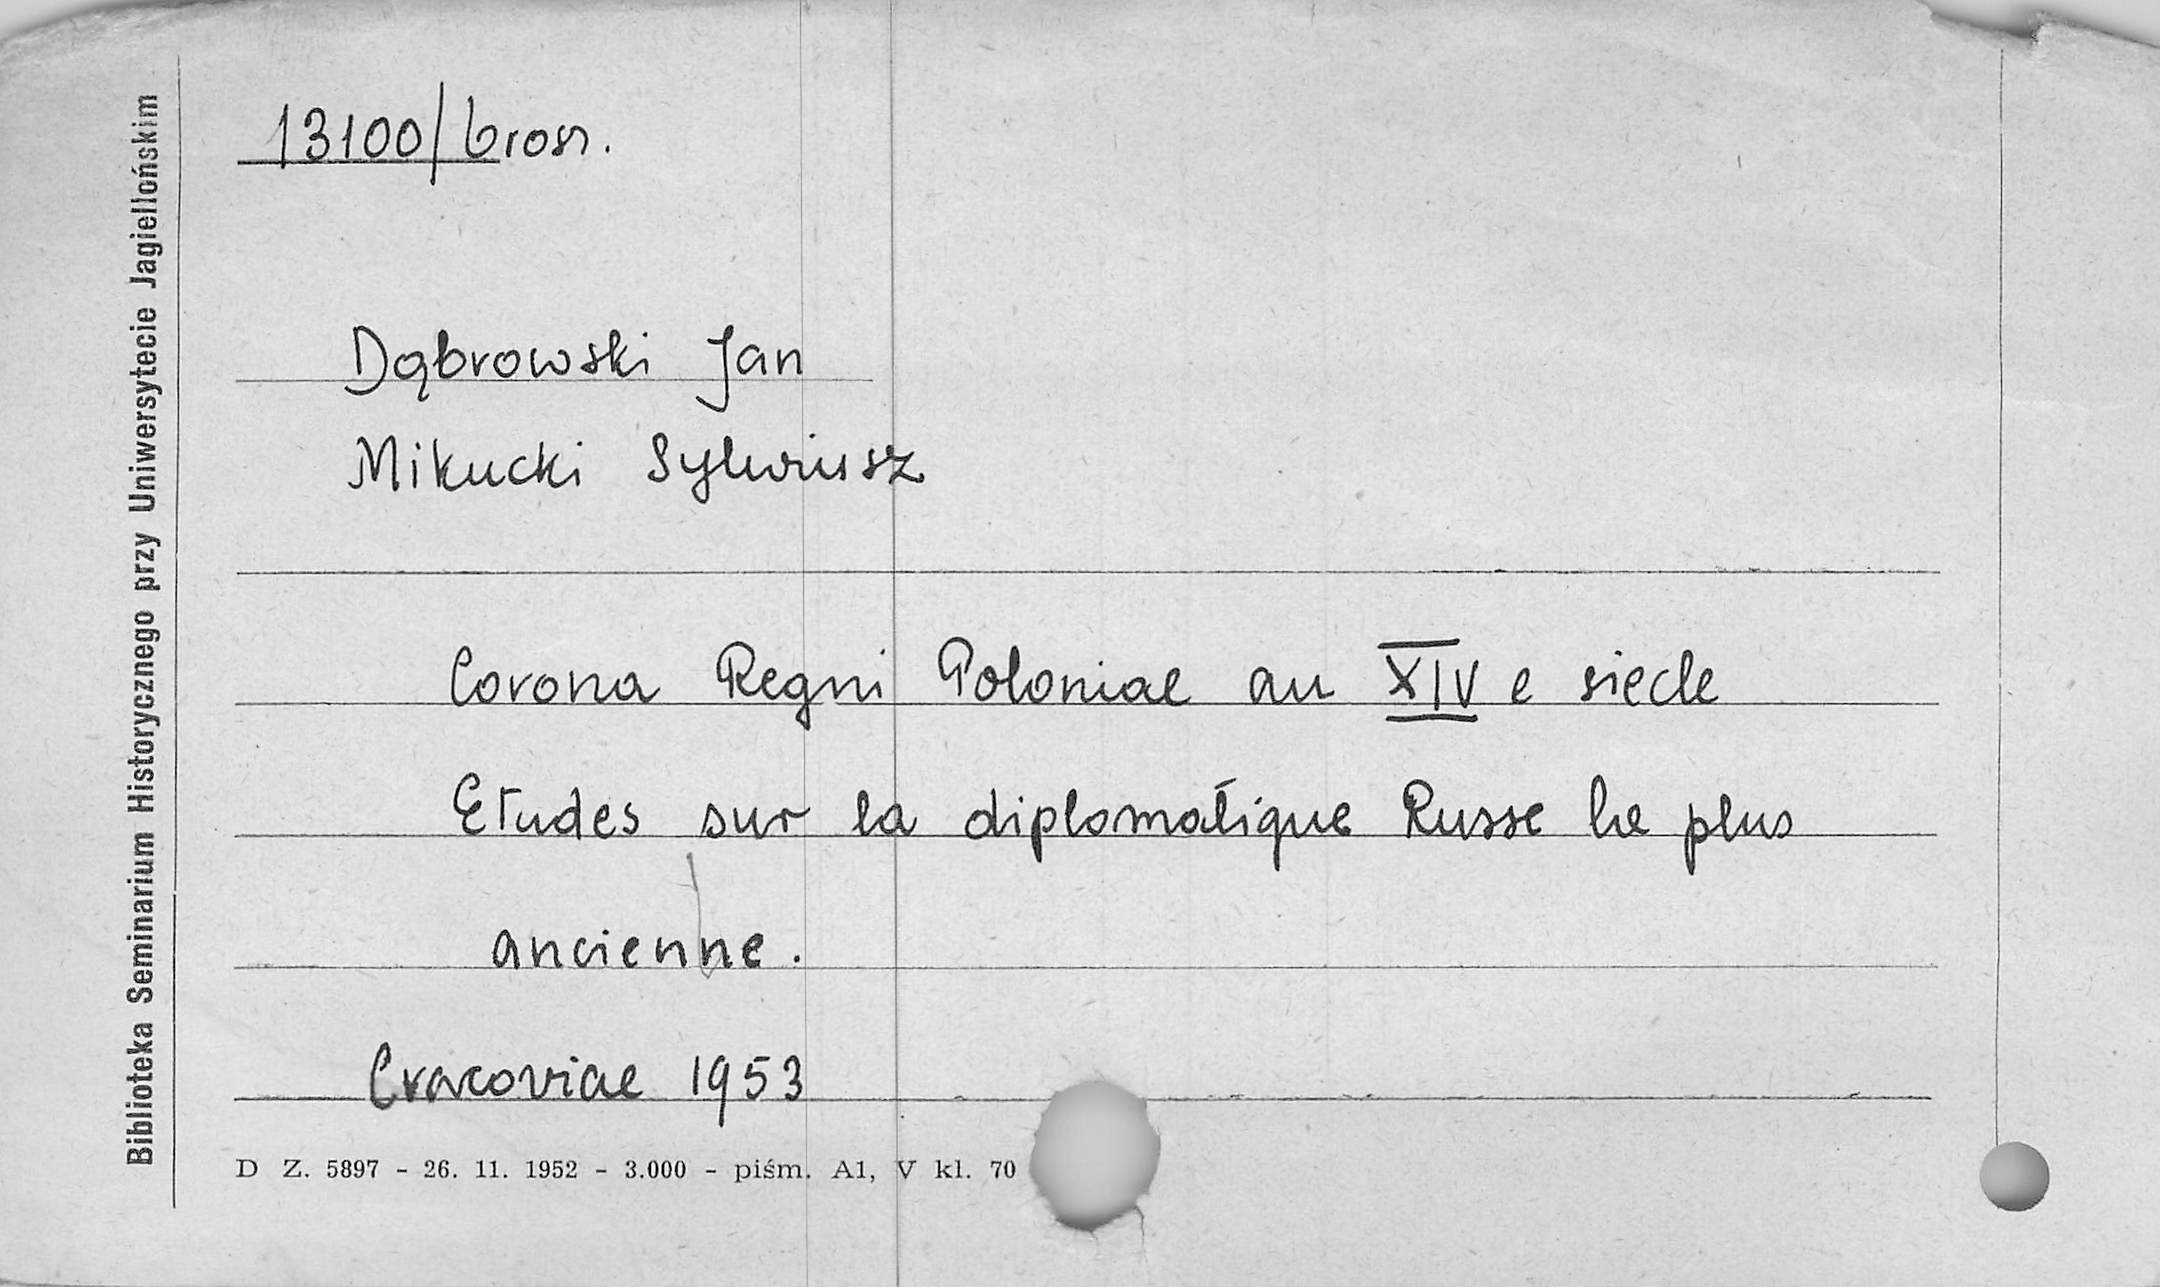 Biblioteka Seminarium Historycznego przy Uniwersytecie Jagiellońskim
13100/brosz.
Dąbrowski Jan
Mikucki Sylwiusz
Corona Regni Poloniae au XIV e siecle
Etudes sur la diplomatique Russe le plus
ancienne.
Cracoviae 1953
D Z. 5897 - 26. 11. 1952 - 3.000 - piśm. A1, V kl. 70